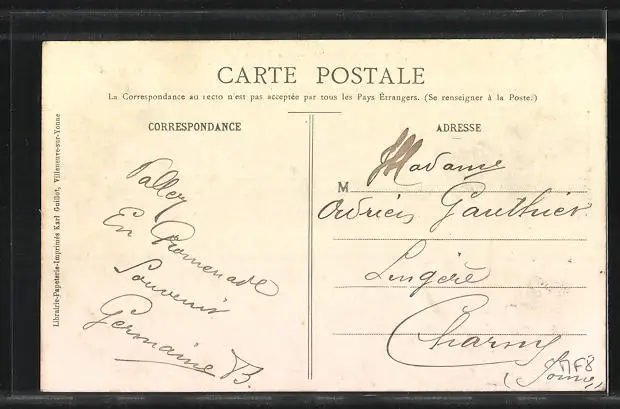 CARTE POSTALE
La Correspondance au recto n'est pas acceptée par tous les Pays Étrangers. (Se renseigner à la Poste.)
CORRESPONDANCE
En Promenade
Souvenir
Germaine B.
ADRESSE
M Madame
Gauthier
Lingère
Charny
(Yonne)
Librairie-Papeterie-Imprimés Karl Guillot, Villeneuve-sur-Yonne